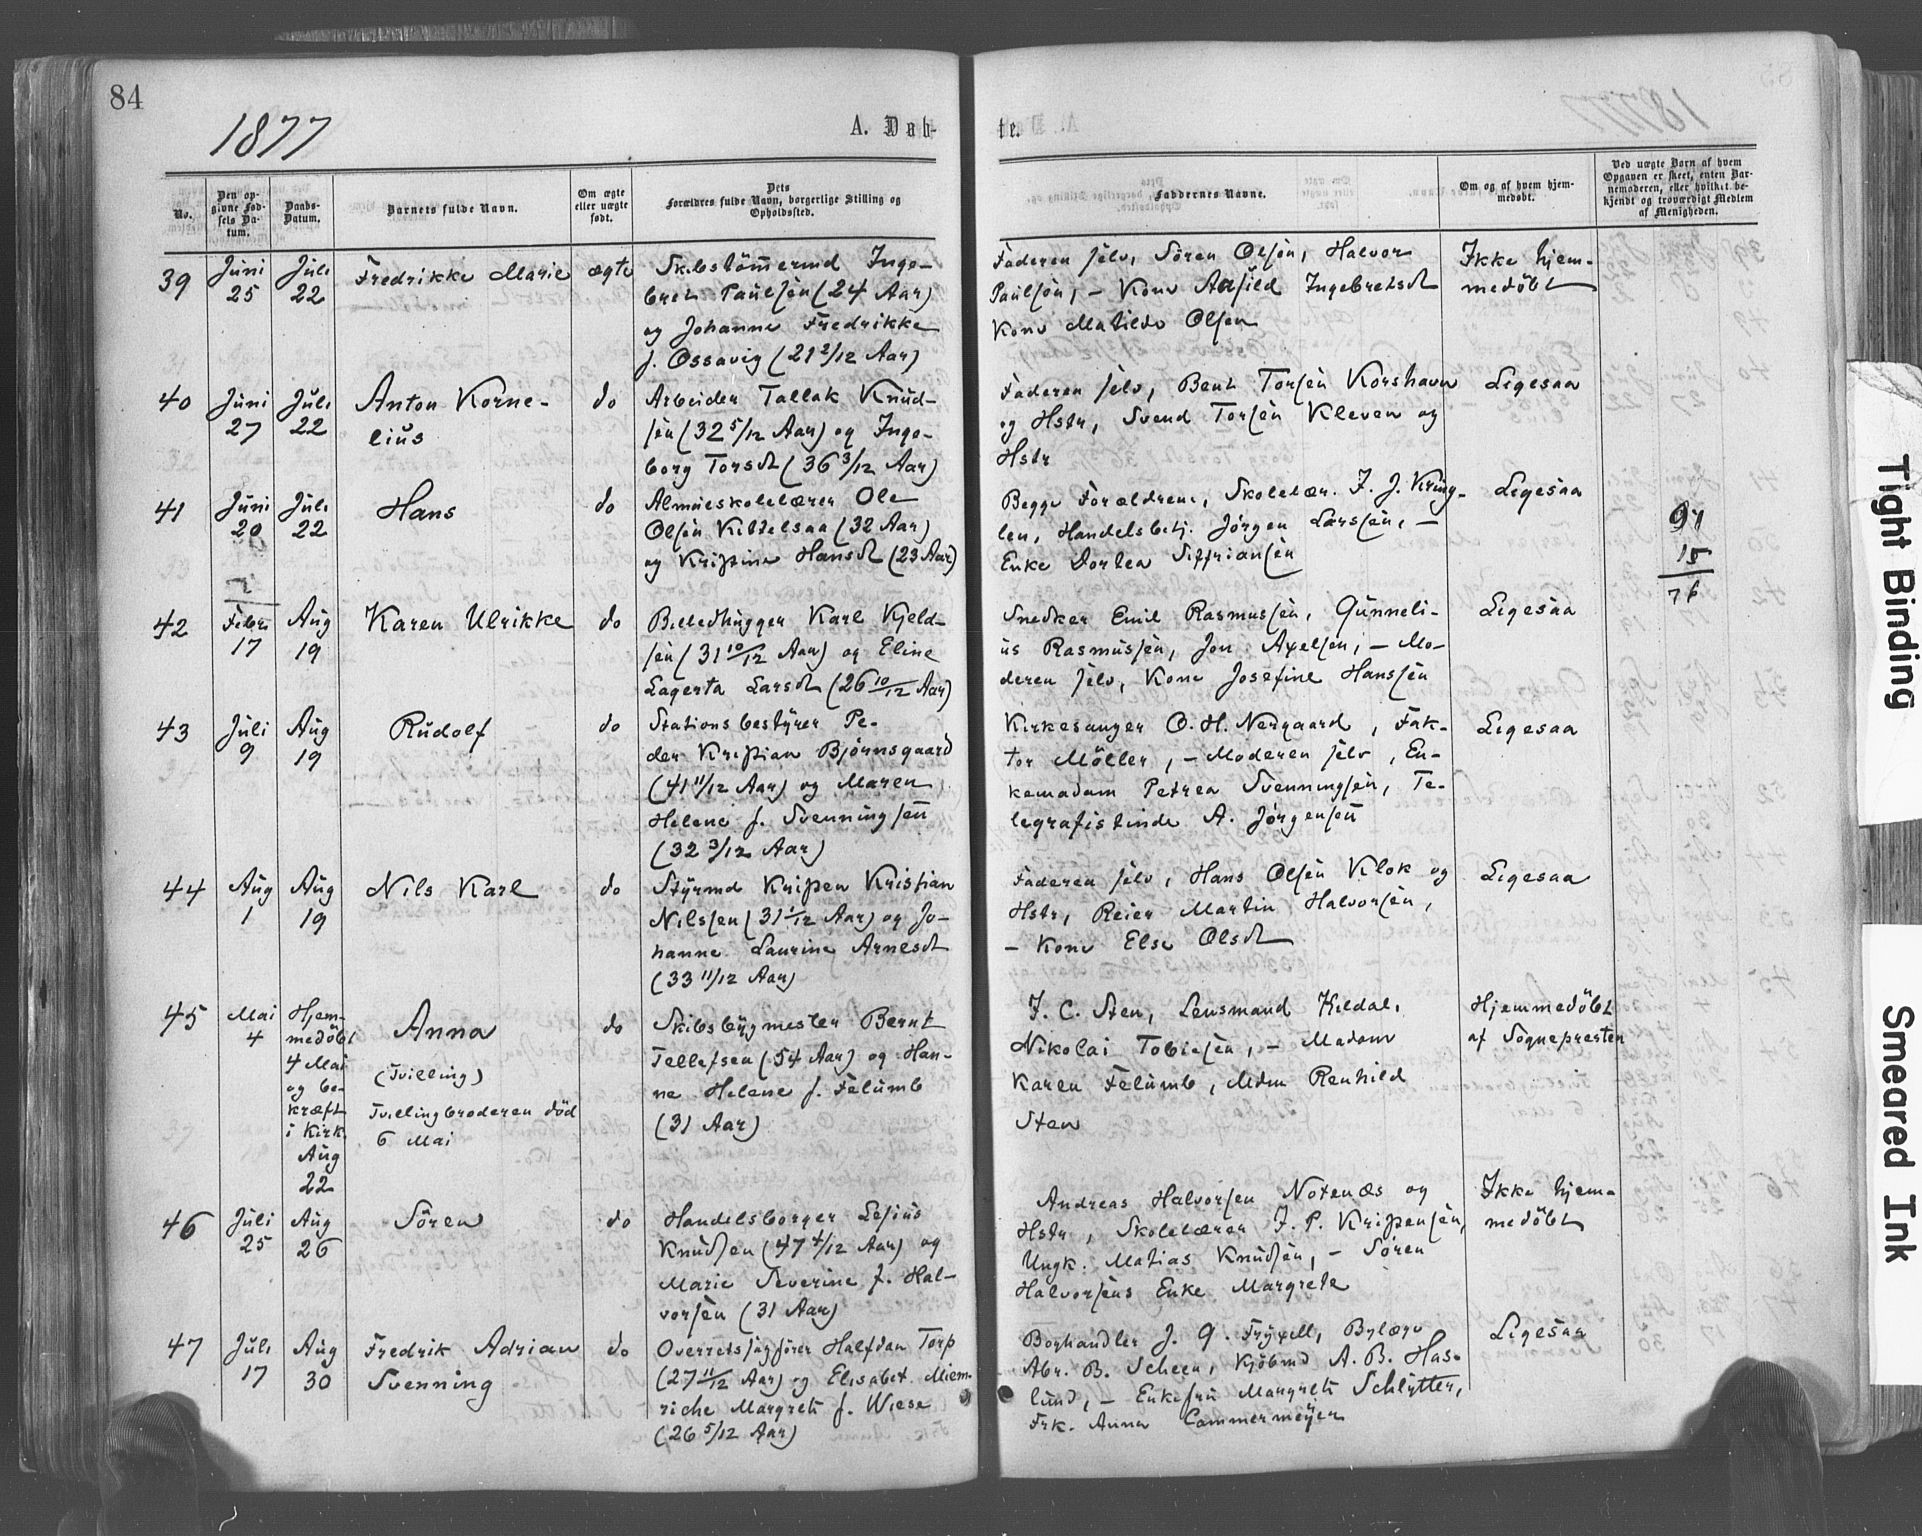 84
1877
A. Døb-
te.
No.
Den op-
givne Fød-
sels Da-
tum.
Daabs-
Datum.
Barnets fulde Navn.
Om ægte
eller uægte
født.
Dets
Forældres fulde Navn, borgerlige Stilling og
Opholdssted.
Faddernes Navne.
Om og af hvem hjem-
medøbt.
Ved uægte Børn af hvem
Opgaven er skeet, enten Bar-
nemoderen, eller hvilket be-
kjendt og troværdigt Medlem
af Menigheden.
39
Juni
25
Juli
22
Fredrikke Marie
ægte
Skibstömermd Inge-
bret Paulsen (24 Aar)
og Johanne Fredrikke
f. Ossavig (21 2/12 Aar)
Faderen selv, Sören Olsön, Halvor
Paulsön, – Kone Aasild Ingebretsdt
Kone Matilde Olsen
Ikke hjem-
medöbt
40
Juni
27
Juli
22
Anton Korne-
lius
do
Arbeider Tallak Knud-
sen (32 5/12 Aar) og Inge-
borg Torsdt (36 3/12 Aar)
Faderen selv, Bent Torsen Korshavn
og Hstr, Svend Torsen Kleven og
Hstr
Ligesaa
41
Juni
20
Juli
22
Hans
do
Almueskolelærer Ole
Olsen Kittelsaa (32 Aar)
og Kristine Hansdt (23 Aar)
Begge Forældrene, Skolelær. F. J. Kring-
len, Handelsbetj. Jørgen Larssen, –
Enke Dortea Siffriansen
Ligesaa
91
15
76
42
Febr
17
Aug
19
Karen Ulrikke
do
Billedhugger Karl Kjeld-
sen (31 10/12 Aar) og Eline
Lagerta Larsdt (26 10/12 Aar)
Snedker Emil Rasmussen, Gunneli-
us Rasmussen, Jon Axelsen, – Mo-
deren selv, Kone Josefine Hanssen
Ligesaa
43
Juli
9
Aug
19
Rudolf
do
Stationsbestyrer Pe-
der Kristian Bjørnsgaard
(41 11/12 Aar) og Maren
Helene f. Svenningsen
(32 3/12 Aar)
Kirkesanger O. H. Nergaard, Fak-
tor Möller, – Moderen selv, En-
kemadam Petrea Svenningsen, Te-
legrafistinde A. Jørgensen
Ligesaa
44
Aug
1
Aug
19
Nils Karl
do
Styrmd Kristen Kristian
Nilssen (31 1/12 Aar) og Jo-
hanne Laurine Arnesdt
(33 11/12 Aar)
Faderen selv, Hans Olsen Klok og
Hstr, Reier Martin Halvorsen,
– Kone Else Olsdt
Ligesaa
45
Mai
4
Hjem-
medöbt
4 Mai
og be-
kræft
i Kirk.
Aug
22
Anna
(Tvilling)
Tvillingbroderen död
6 Mai
do
Skibsbygmester Bernt
Tellefsen (54 Aar) og Han-
ne Helene f. Felumb
(31 Aar)
J. C. Sten, Lensmand Kildal,
Nikolai Tobiesen, – Madam
Karen Felumb, Mdm Renhild
Sten
Hjemmedöbt
af Sognepresten
46
Juli
25
Aug
26
Sören
do
Handelsborger Lesius
Knudsen (47 4/12 Aar) og
Marie Severine f. Hal-
vorsen (31 Aar)
Andreas Halvorsen Notenæs og
Hstr, Skolelærer F. P. Kristensen,
Ungk. Matias Knudsen, – Sören
Halvorsens Enke Margrete
Ikke hjem-
medöbt
47
Juli
17
Aug
30
Fredrik Adrian
Svenning
do
Overretssagfører Halfdan Torp
(27 11/12 Aar) og Elisabet Miem-
riche Margrete f. Wiese
(26 5/12 Aar)
Boghandler J. G. Fryxell, Bylæge
Abr. B. Scheen, Kjöbmd A. B. Has-
lund, – Enkefru Margrete Schlytter,
Frk. Anna Cammermeyer
Ligesaa
Tight Binding
Smeared Ink